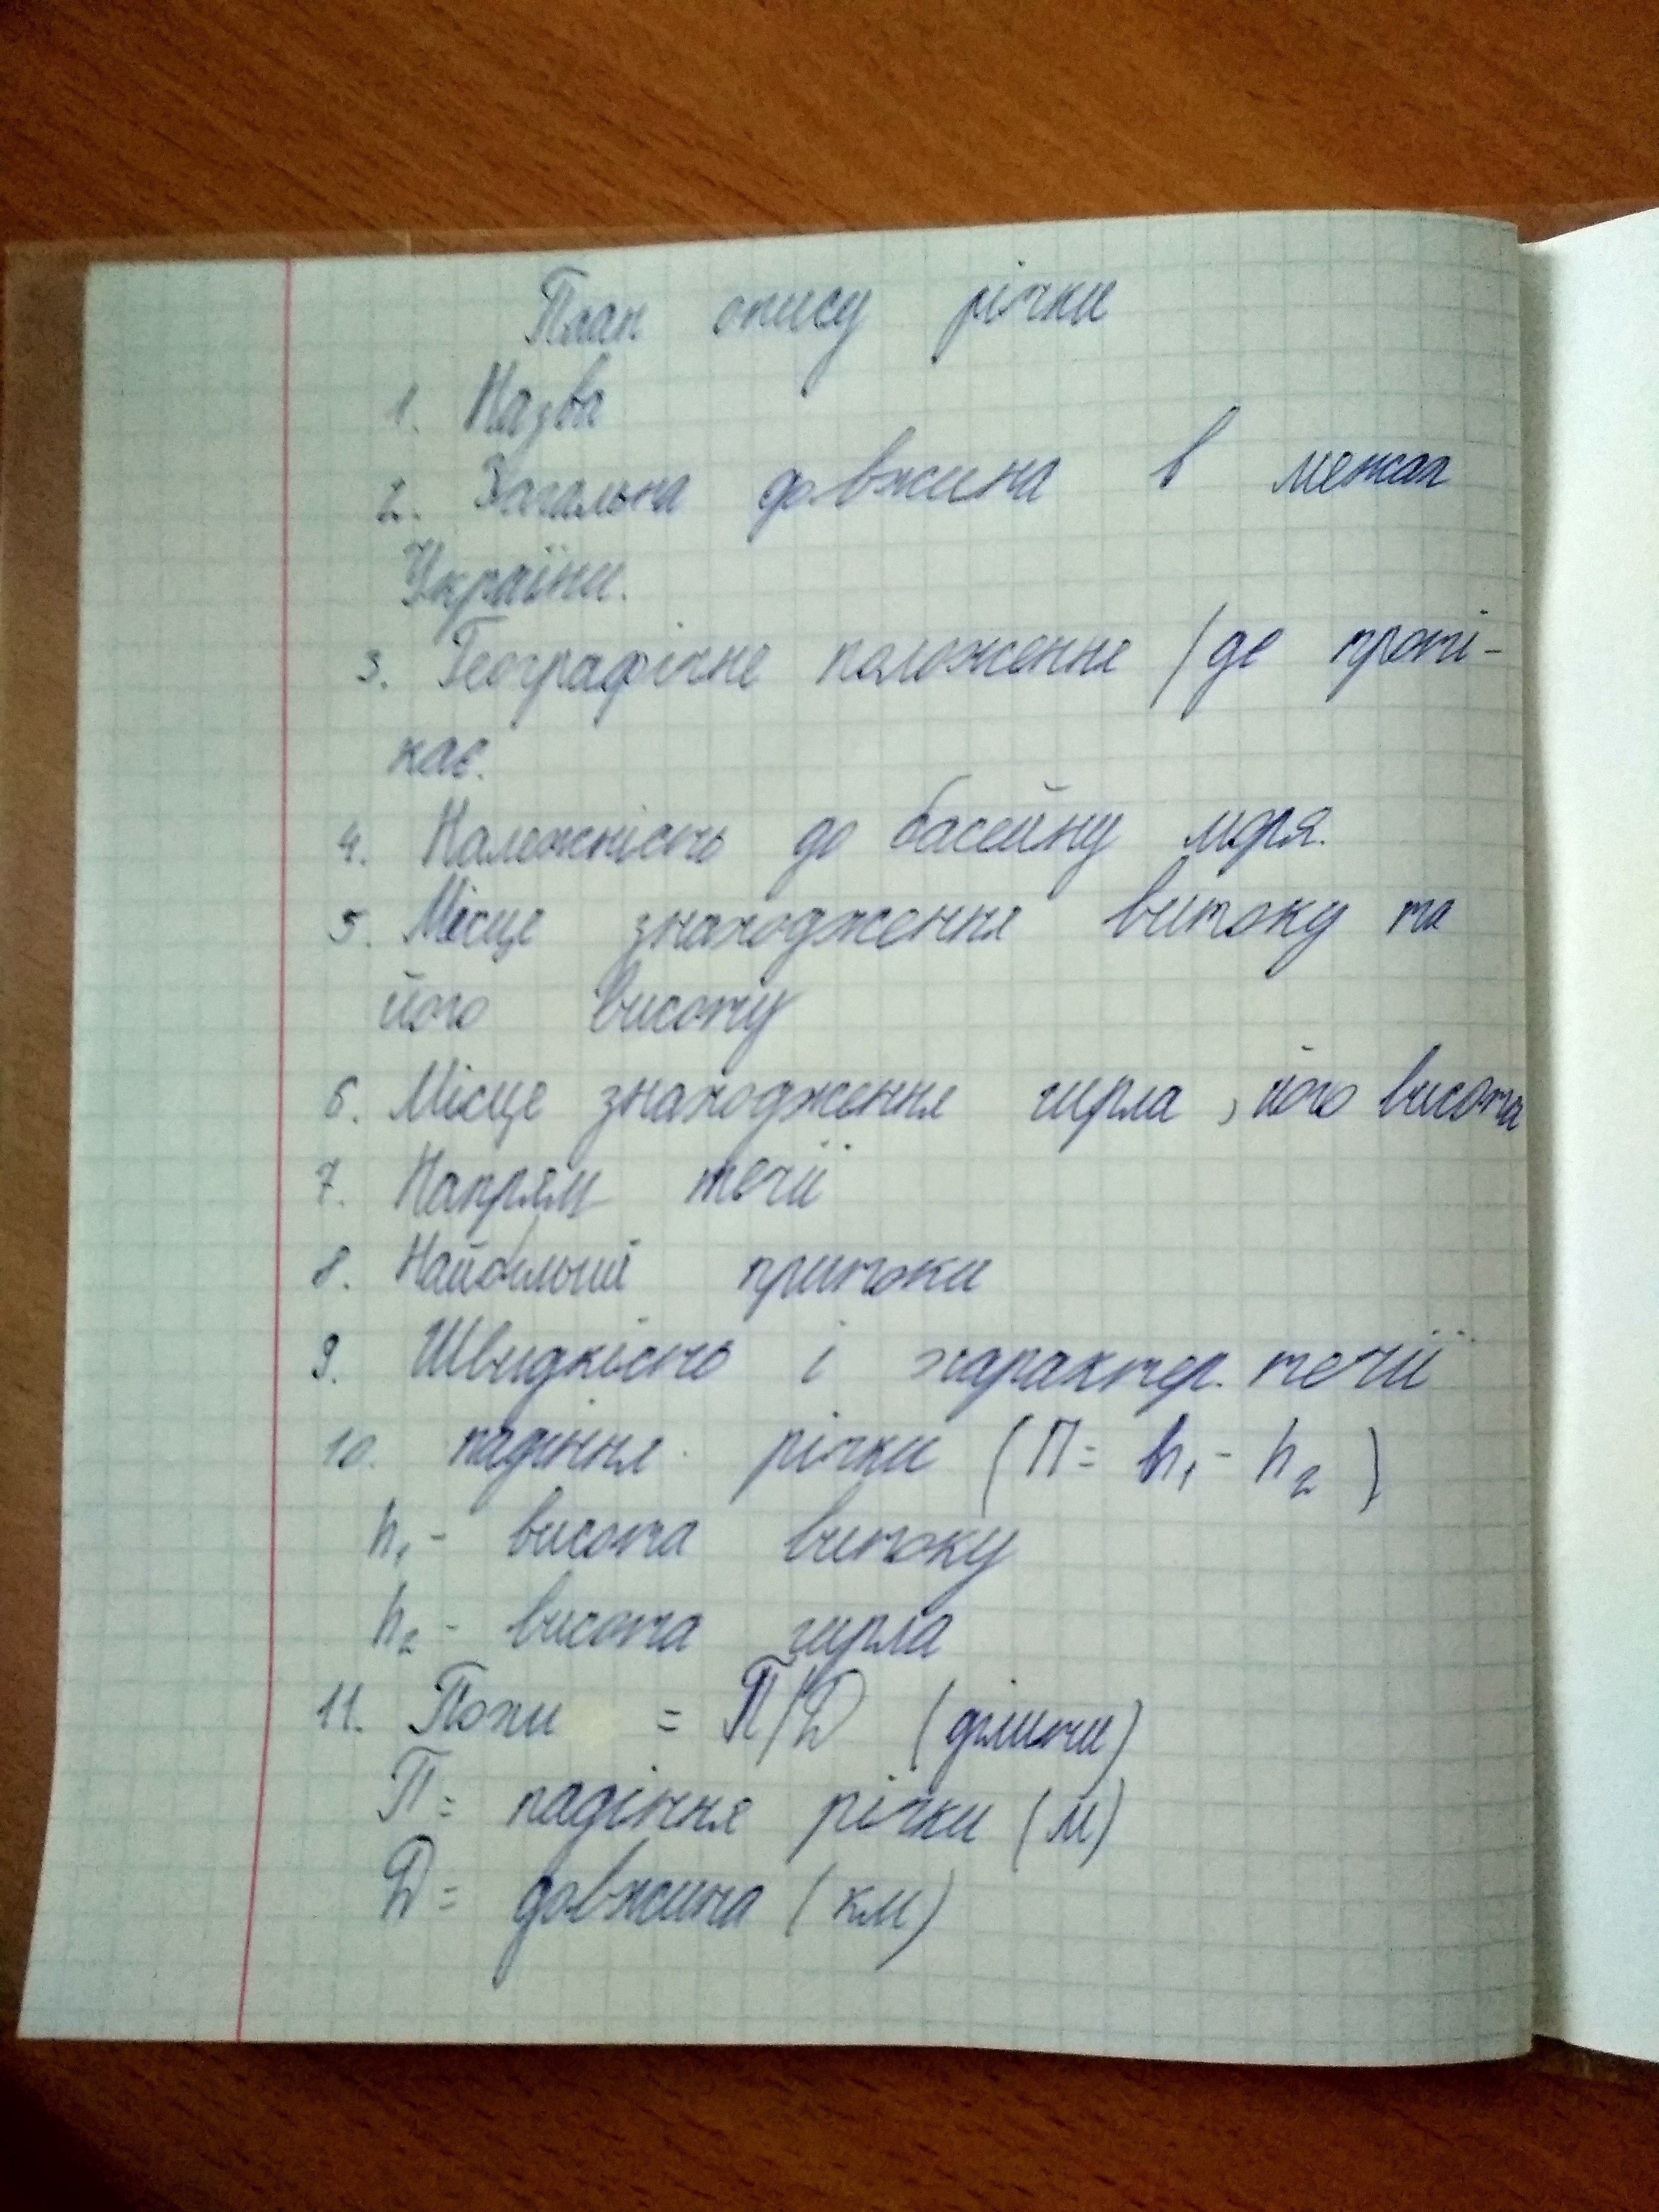 План опису річки
1. Назва
2. Загальна довжина в межах
України.
3. Географічне положення /де проті-
кає.
4. Належність до басейну моря.
5. Місце знаходження витоку та
його висоту
6. Місце знаходження гирла, його висота
7. Напрям течії
8. Найбільші притоки
9. Швидкість і характер. течії
10. падіння річки (П = h₁ - h₂)
h₁ - висота витоку
h₂ - висота гирла
11. Похи = П/Д (ділити)
П = падіння річки (м)
Д = довжина (км)